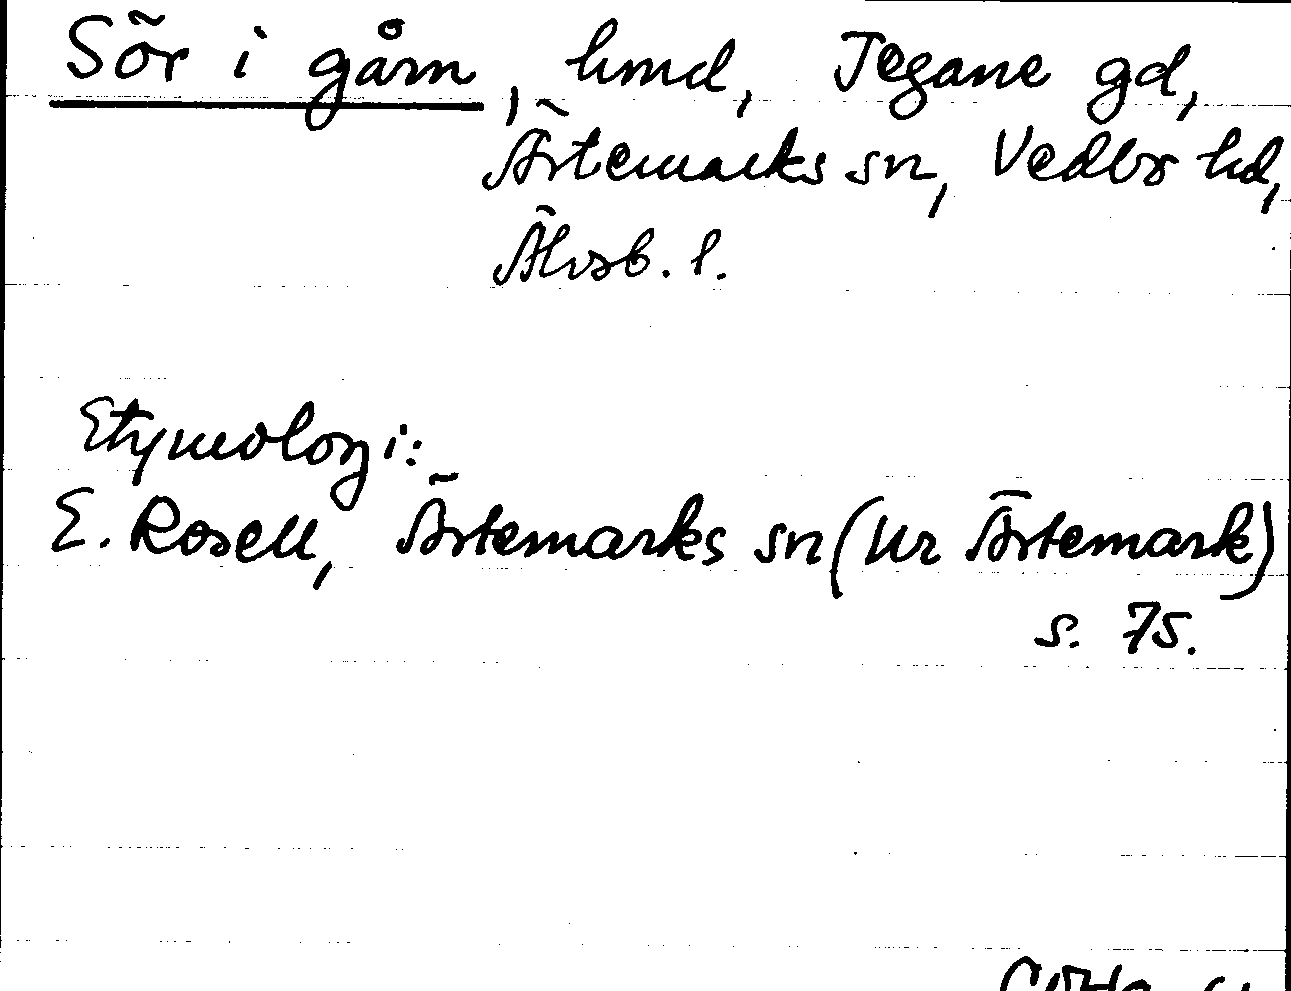 Sör i gårn, hmd, Tegane gd,
Ärtemarks sn, Vedbo hd,
Älvsb. l.
Etymologi:
E. Rosell, Ärtemarks sn (Ur Ärtemark)
s. 75.